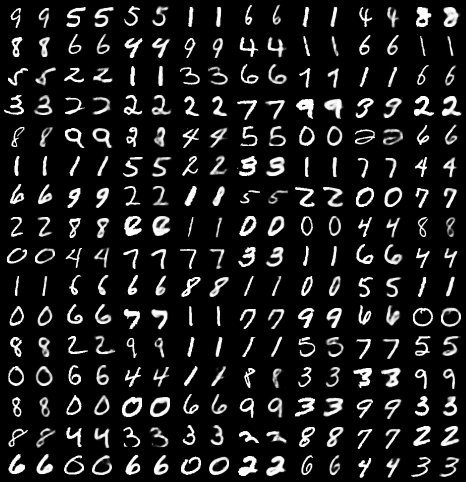 9 9 5 5 5 5 1 1 6 6 1 1 4 4 8 8
8 8 6 6 4 4 9 9 4 4 1 1 6 6 1 1
5 5 2 2 1 1 3 3 6 6 1 1 1 1 6 6
3 3 2 2 2 2 2 2 7 7 9 9 3 9 2 2
8 8 9 9 2 2 4 4 5 5 0 0 2 2 6 6
1 1 1 1 5 5 2 2 3 3 1 1 7 7 4 4
6 6 9 9 2 2 1 8 5 5 2 2 0 0 7 7
2 2 8 8 1 1 0 0 0 0 4 4 8 8
0 0 4 4 7 7 7 7 3 3 1 1 6 6 4 4
1 1 6 6 6 6 8 8 1 1 0 0 5 5 1 1
0 0 6 6 7 7 1 1 7 7 9 9 6 6 0 0
8 8 2 2 9 9 1 1 1 1 5 5 7 7 5 5
0 0 6 6 4 4 1 1 8 8 3 3 3 3 9 9
8 8 0 0 0 0 6 6 9 9 3 3 9 9 3 3
8 8 4 4 3 3 3 3 2 2 8 8 7 7 2 2
6 6 0 0 6 6 0 0 2 2 6 6 4 4 3 3